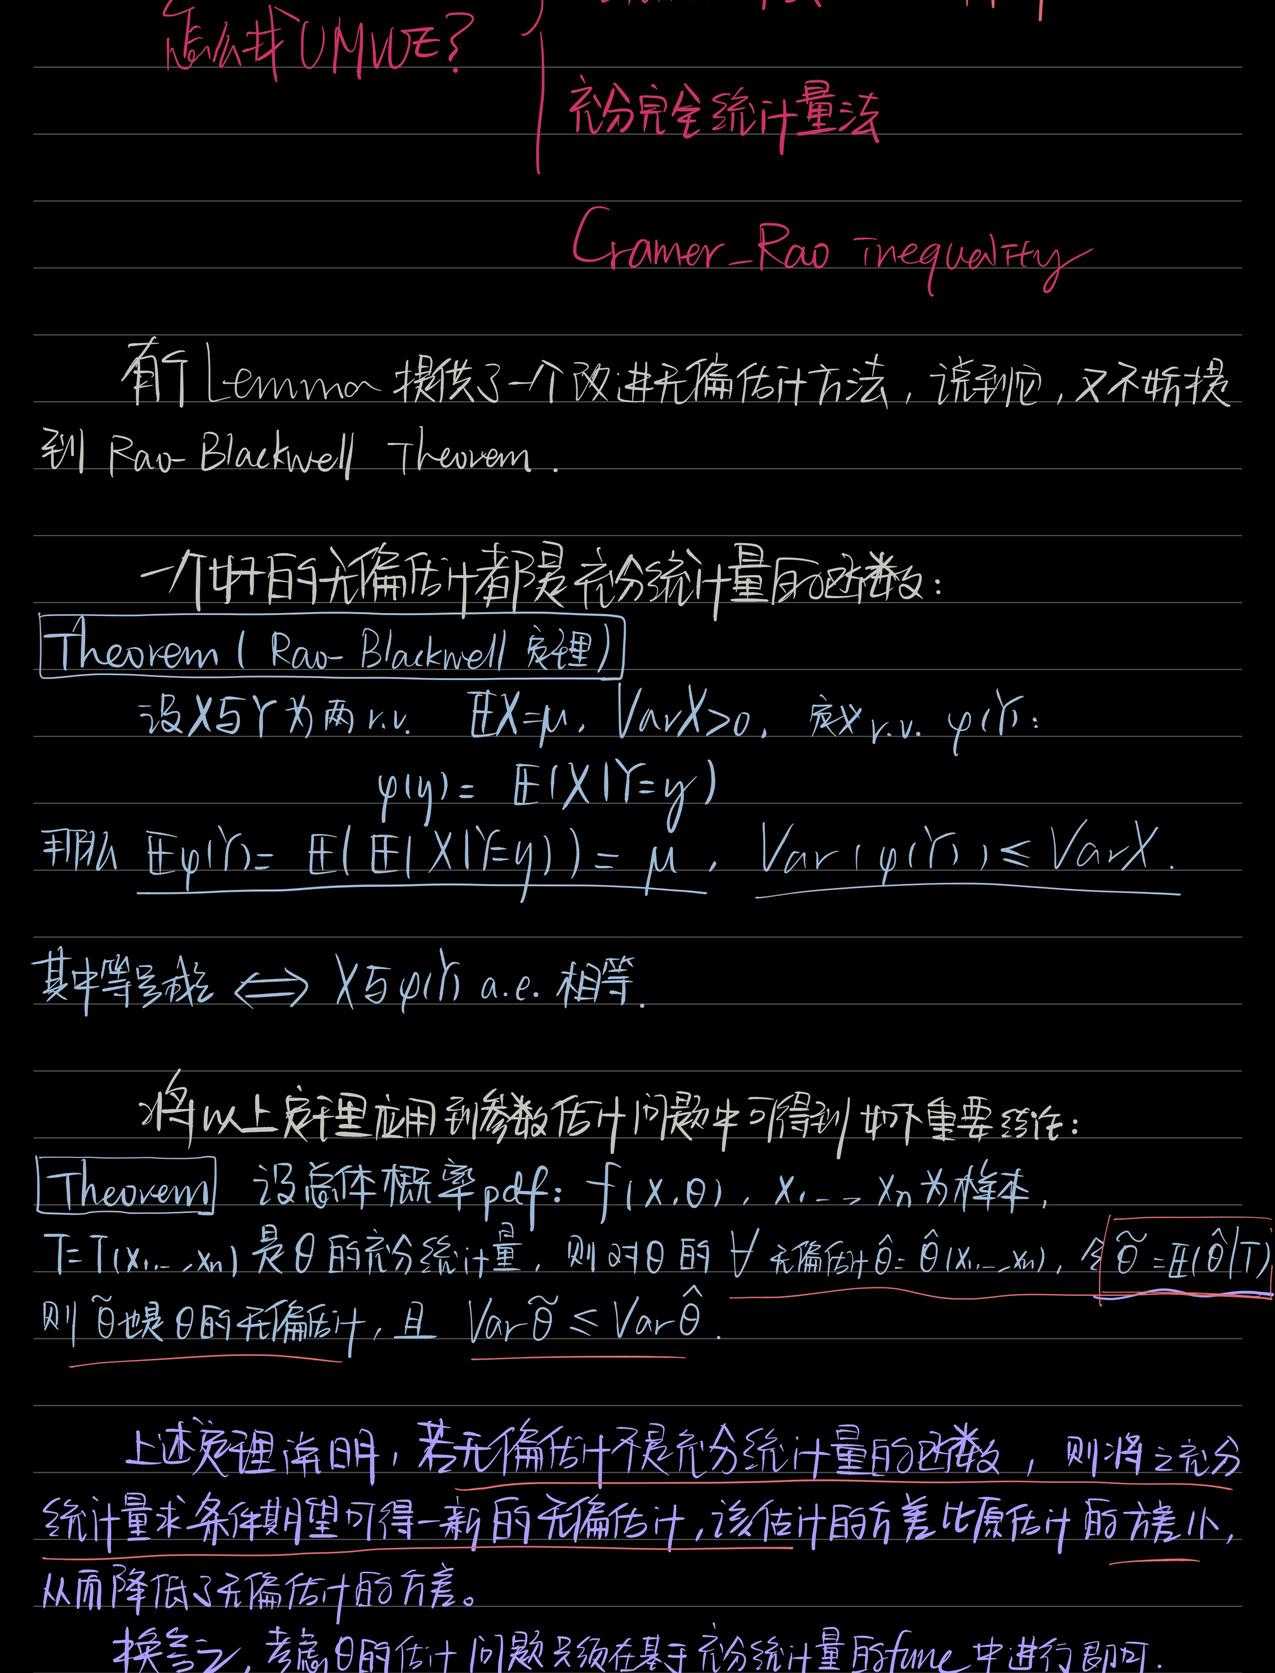 怎么求UMVUE?
充分完全统计量法
Cramer-Rao inequality
有个Lemma 提供了一个改进无偏估计方法，谈到它，又不妨提
到 Rao-Blackwell Theorem.
一个好的无偏估计都是充分统计量的函数：
Theorem ( Rao-Blackwell 定理)
设X与Y为两 r.v. 𝔼X=μ, VarX>0, 定义 r.v. φ(Y):
φ(y) = 𝔼(X|Y=y)
那么 𝔼φ(Y)= 𝔼(𝔼(X|Y=y)) = μ, Var(φ(Y)) ≤ VarX.
其中等号成立 ⟺ X与φ(Y) a.e. 相等.
将以上定理应用到参数估计问题中可得到如下重要结论：
Theorem 设总体概率 pdf: f(x,θ), x1...,xn 为样本,
T=T(x1...,xn) 是θ的充分统计量，则对θ的 ∀ 无偏估计θ̂=θ̂(x1...,xn), 令 θ̃=𝔼(θ̂|T)
则 θ̃也是θ的无偏估计，且 Varθ̃ ≤ Varθ̂.
上述定理说明，若无偏估计不是充分统计量的函数，则将之充分
统计量求条件期望可得一新的无偏估计,该估计的方差比原估计的方差小,
从而降低了无偏估计的方差。
换言之,考虑θ的估计问题只须在基于充分统计量的func中进行即可.